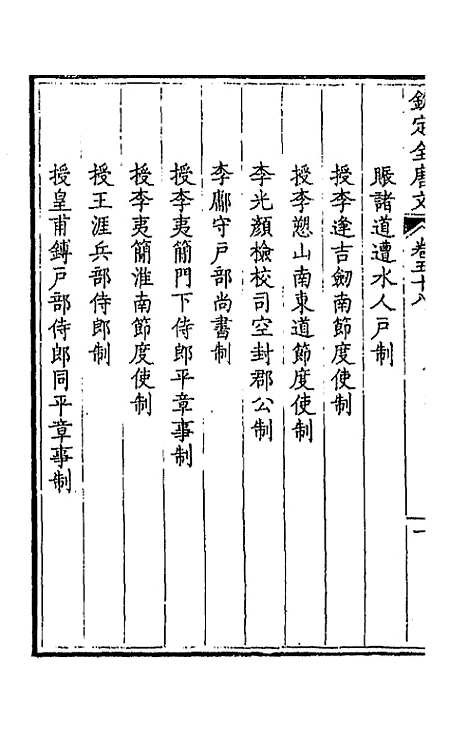 欽定全唐文 卷五十八 一
賑諸道遭水人戸制
授李逢吉劒南節度使制
授李愬山南東道節度使制
李光顔檢校司空封郡公制
李鄘守戸部尚書制
授李夷簡門下侍郎平章事制
授李夷簡淮南節度使制
授王涯兵部侍郎制
授皇甫鎛戸部侍郎同平章事制